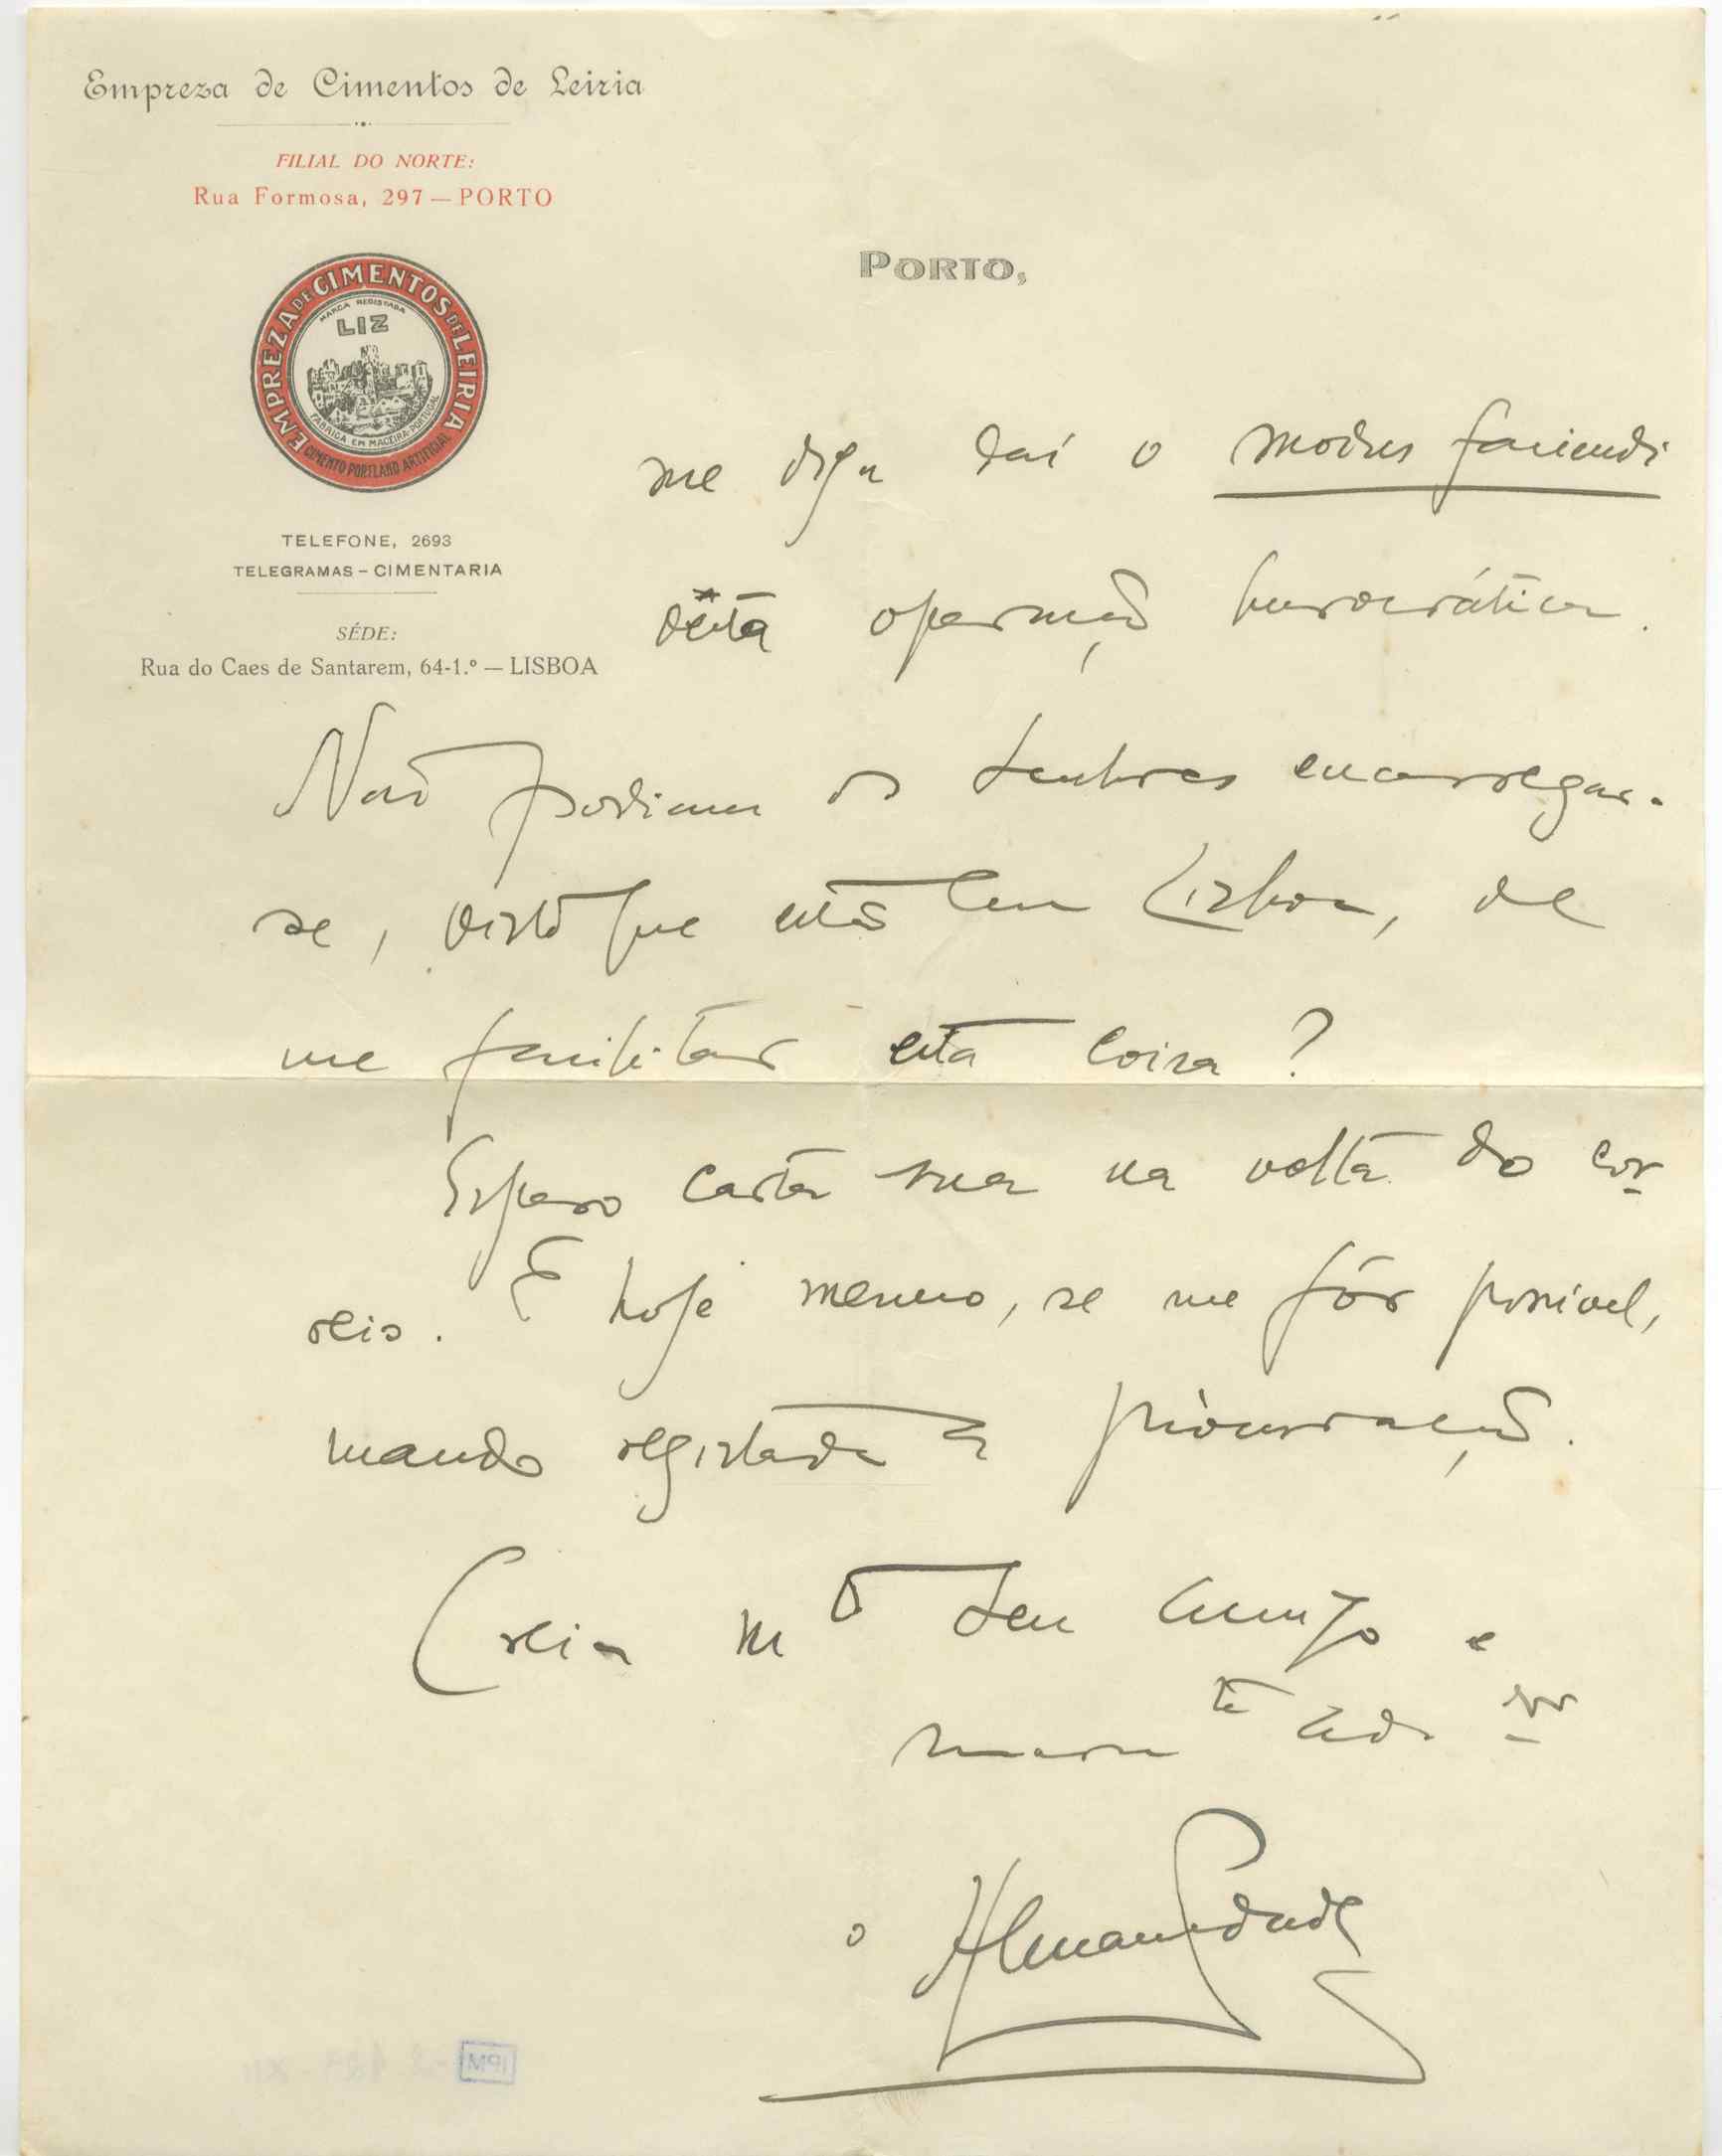 Empreza de Cimentos de Leiria
FILIAL DO NORTE:
Rua Formosa, 297 — PORTO
EMPREZA DE CIMENTOS DE LEIRIA
MARCA REGISTADA
LIZ
FABRICA EM MACEIRA-PORTUGAL
CIMENTO PORTLAND ARTIFICIAL
TELEFONE, 2693
TELEGRAMAS – CIMENTARIA
SÉDE:
Rua do Caes de Santarem, 64-1.º — LISBOA
PORTO,
me diga daí o modus faciendi
desta operação burocrática.
Não podiam os senhores encarregar-
se, visto que estão em Lisboa, de
me facilitar esta coisa?
Espero carta sua na volta do cor-
reio. E hoje mesmo, se me fôr possivel,
mando registada a procuração.
Creia m.to seu amigo e
te adm.or
o
MPI